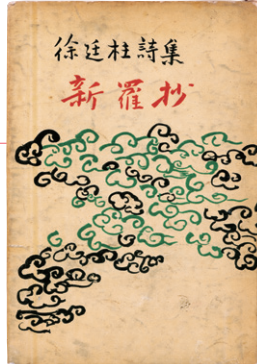 徐廷柱詩集
新羅抄